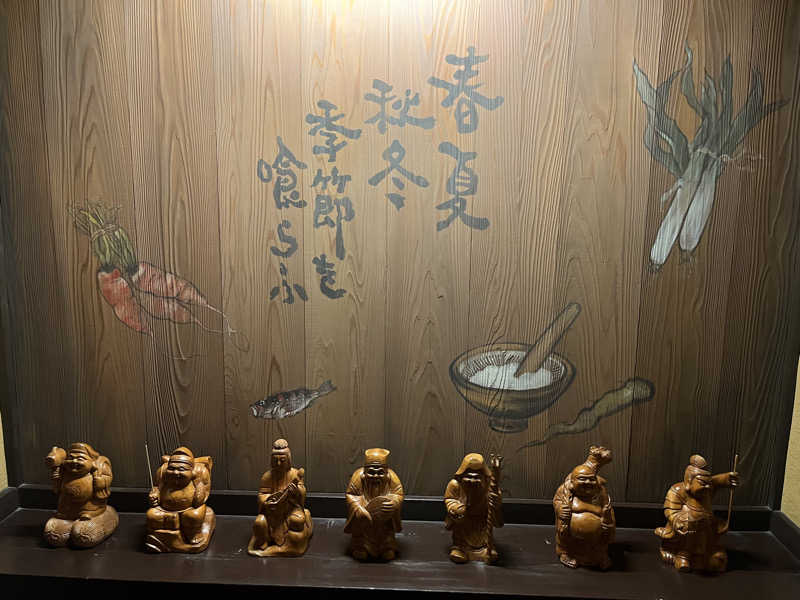 春夏
秋冬
季節を
喰らふ